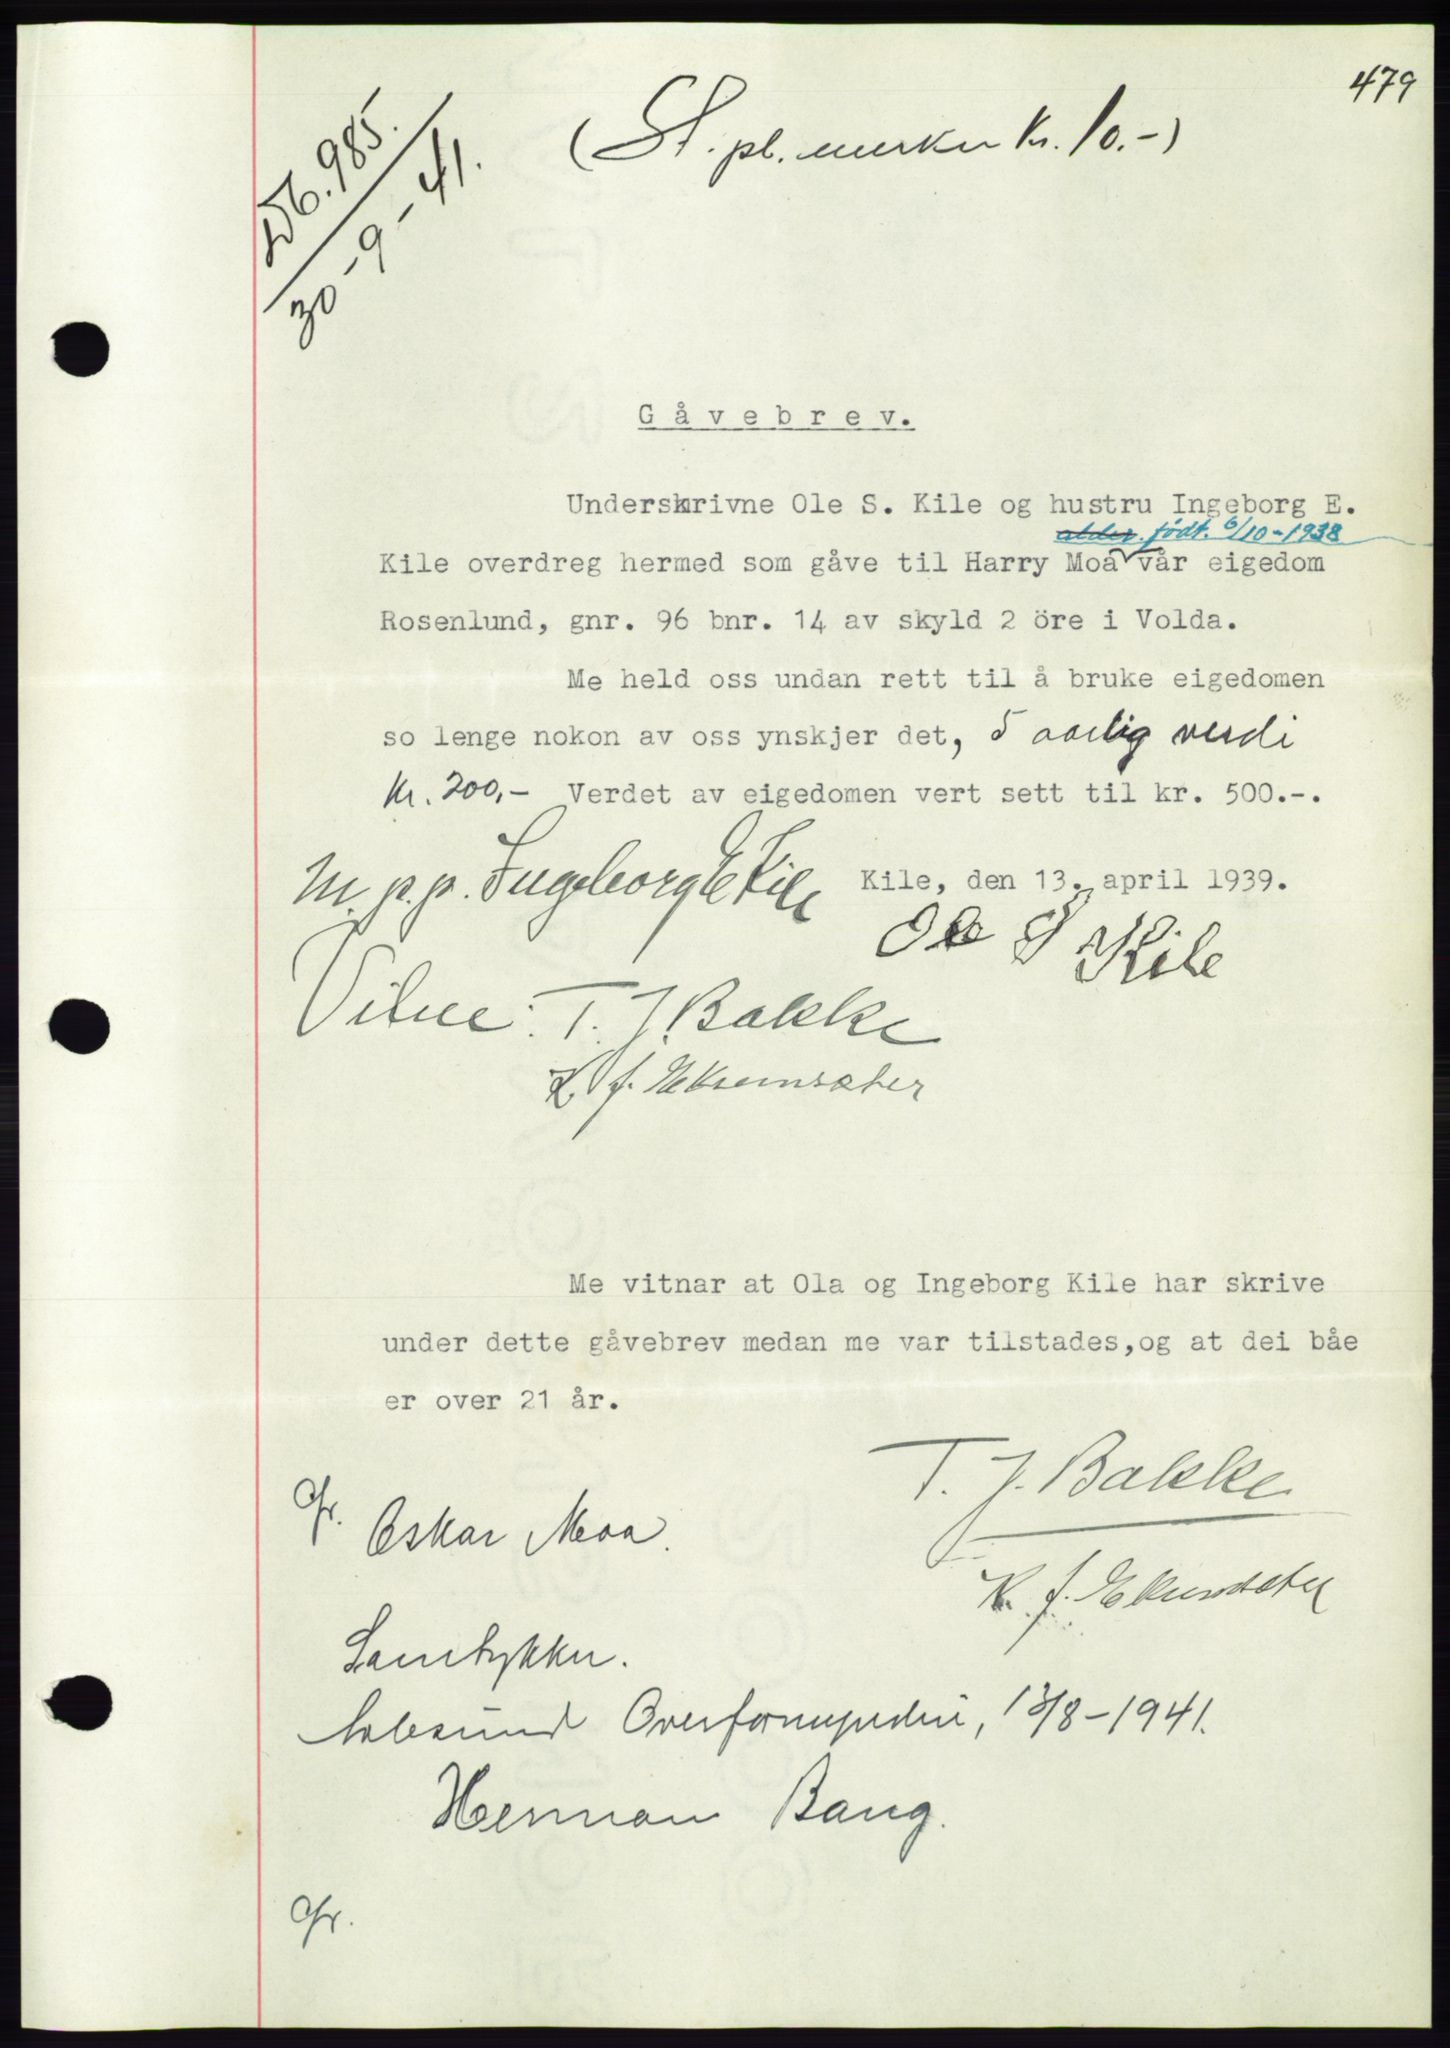 479
(St. pl. merker kr. 10.-)
Db. 985.
30-9-41.
Gåvebrev.
Underskrivne Ole S. Kile og hustru Ingeborg E.
alder. født. 6/10-1938
Kile overdreg hermed som gåve til Harry Moa vår eigedom
Rosenlund, gnr. 96 bnr. 14 av skyld 2 öre i Volda.
Me held oss undan rett til å bruke eigedomen
so lenge nokon av oss ynskjer det, 5 aarlig verdi
kr. 200,- Verdet av eigedomen vert sett til kr. 500.-.
Kile, den 13. april 1939.
m. p. p. Ingeborg E Kile
Ole S Kile
Vitne: T. J. Bakke
K. J. Ekremsæter
Me vitnar at Ola og Ingeborg Kile har skrive
under dette gåvebrev medan me var tilstades,og at dei båe
er over 21 år.
T. J. Bakke
Gr. Oskar Moa.
K. J. Ekremsæter
Samtykker.
Aalesund Overformynderi, 13/8-1941.
Herman Bang.
Gr.